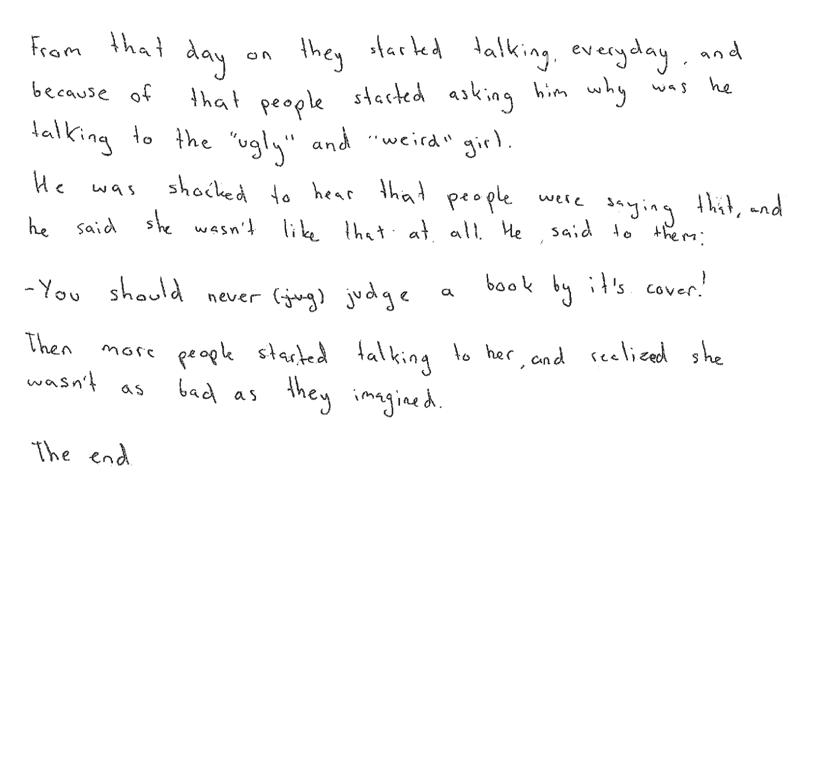 From that day on they started talking, everyday, and
because of that people started asking him why was he
talking to the "ugly" and "weird" girl.
He was shocked to hear that people were saying that, and
he said she wasn't like that at all. He said to them:
-You should never (jug) judge a book by it's cover!
Then more people started talking to her, and realized she
wasn't as bad as they imagined.
The end